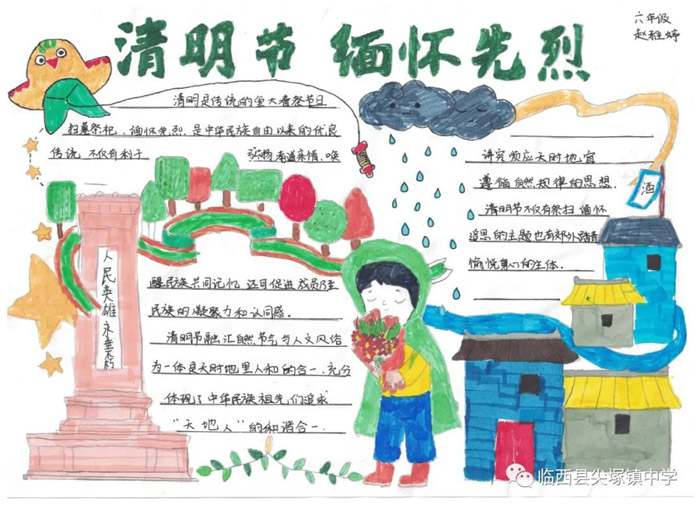 清明节 缅怀先烈
六年级
赵雅婷
清明是传统的重大春祭节日
扫墓祭祀、缅怀先烈,是中华民族自古以来的优良
传统,不仅有利于 弘扬孝道亲情、唤
醒民族共同记忆,还可促进
民族的凝聚力和认同感。
清明节融汇自然节气与人文风俗
为一体是天时地里人和的合一,充分
体现了中华民族祖先们追求
“天地人”的和谐合一
讲究顺应天时地宜
遵循自然规律的思想.
清明节不仅有祭扫缅怀
追思的主题也有郊外踏青
愉悦身心的主体.
酒
人民英雄永垂不朽
临西县尖塚镇中学